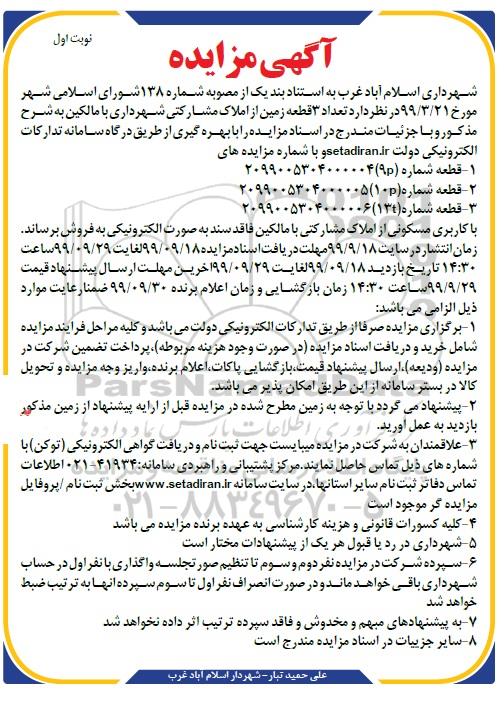 نوبت اول
آگهی مزایده
شهرداری اسلام آباد غرب به استناد بند یک از مصوبه شماره ۱۳۸ شورای اسلامی شهر
مورخ ۹۹/۳/۲۱ در نظر دارد تعداد ۳ قطعه زمین از املاک مشارکتی شهرداری با مالکین به شرح
مذکور و با جزئیات مندرج در اسناد مزایده را با بهره گیری از طریق درگاه سامانه تدارکات
الکترونیکی دولت setadiran.ir و با شماره مزایده های
۱-قطعه شماره (۹p) ۲۰۹۹۰۰۵۳۰۴۰۰۰۰۰۴
۲-قطعه شماره (۱۰p) ۲۰۹۹۰۰۵۳۰۴۰۰۰۰۰۵
۳-قطعه شماره (۱۳t) ۲۰۹۹۰۰۵۳۰۴۰۰۰۰۰۶
با کاربری مسکونی از املاک مشارکتی با مالکین فاقد سند به صورت الکترونیکی به فروش برساند.
زمان انتشار در سایت ۹۹/۹/۱۸ مهلت دریافت اسناد مزایده ۹۹/۰۹/۱۸ لغایت ۹۹/۰۹/۲۹ ساعت
۱۴:۳۰ تاریخ بازدید ۹۹/۰۹/۱۸ لغایت ۹۹/۰۹/۲۹ اخرین مهلت ارسال پیشنهاد قیمت
۹۹/۹/۲۹ ساعت ۱۴:۳۰ زمان بازگشایی و زمان اعلام برنده ۹۹/۰۹/۳۰ ضمنا رعایت موارد
ذیل الزامی می باشد:
۱-برگزاری مزایده صرفا از طریق تدارکات الکترونیکی دولت می باشد و کلیه مراحل فرایند مزایده
شامل خرید و دریافت اسناد مزایده (در صورت وجود هزینه مربوطه)، پرداخت تضمین شرکت در
مزایده (ودیعه)، ارسال پیشنهاد قیمت، بازگشایی پاکات، اعلام برنده، واریز وجه مزایده و تحویل
کالا در بستر سامانه از این طریق امکان پذیر می باشد.
۲-پیشنهاد می گردد با توجه به زمین مطرح شده در مزایده قبل از ارایه پیشنهاد از زمین مذکور
بازدید به عمل آورید.
۳-علاقمندان به شرکت در مزایده میبایست جهت ثبت نام و دریافت گواهی الکترونیکی (توکن) با
شماره های ذیل تماس حاصل نمایند. مرکز پشتیبانی و راهبردی سامانه: ۴۱۹۳۴-۰۲۱ اطلاعات
تماس دفاتر ثبت نام سایر استانها، در سایت سامانه www.setadiran.ir بخش ثبت نام /پروفایل
مزایده گر موجود است
۴-کلیه کسورات قانونی و هزینه کارشناسی به عهده برنده مزایده می باشد
۵-شهرداری در رد یا قبول هر یک از پیشنهادات مختار است
۶-سپرده شرکت در مزایده نفر دوم و سوم تا تنظیم صورتجلسه واگذاری با نفر اول در حساب
شهرداری باقی خواهد ماند و در صورت انصراف نفر اول تا سوم سپرده انها به ترتیب ضبط
خواهد شد
۷-به پیشنهادهای مبهم و مخدوش و فاقد سپرده ترتیب اثر داده نخواهد شد
۸-سایر جزییات در اسناد مزایده مندرج است
علی حمید تبار - شهردار اسلام آباد غرب
ParsNamadData
۰۲۱-۸۸۳۴۹۶۷۰-۵